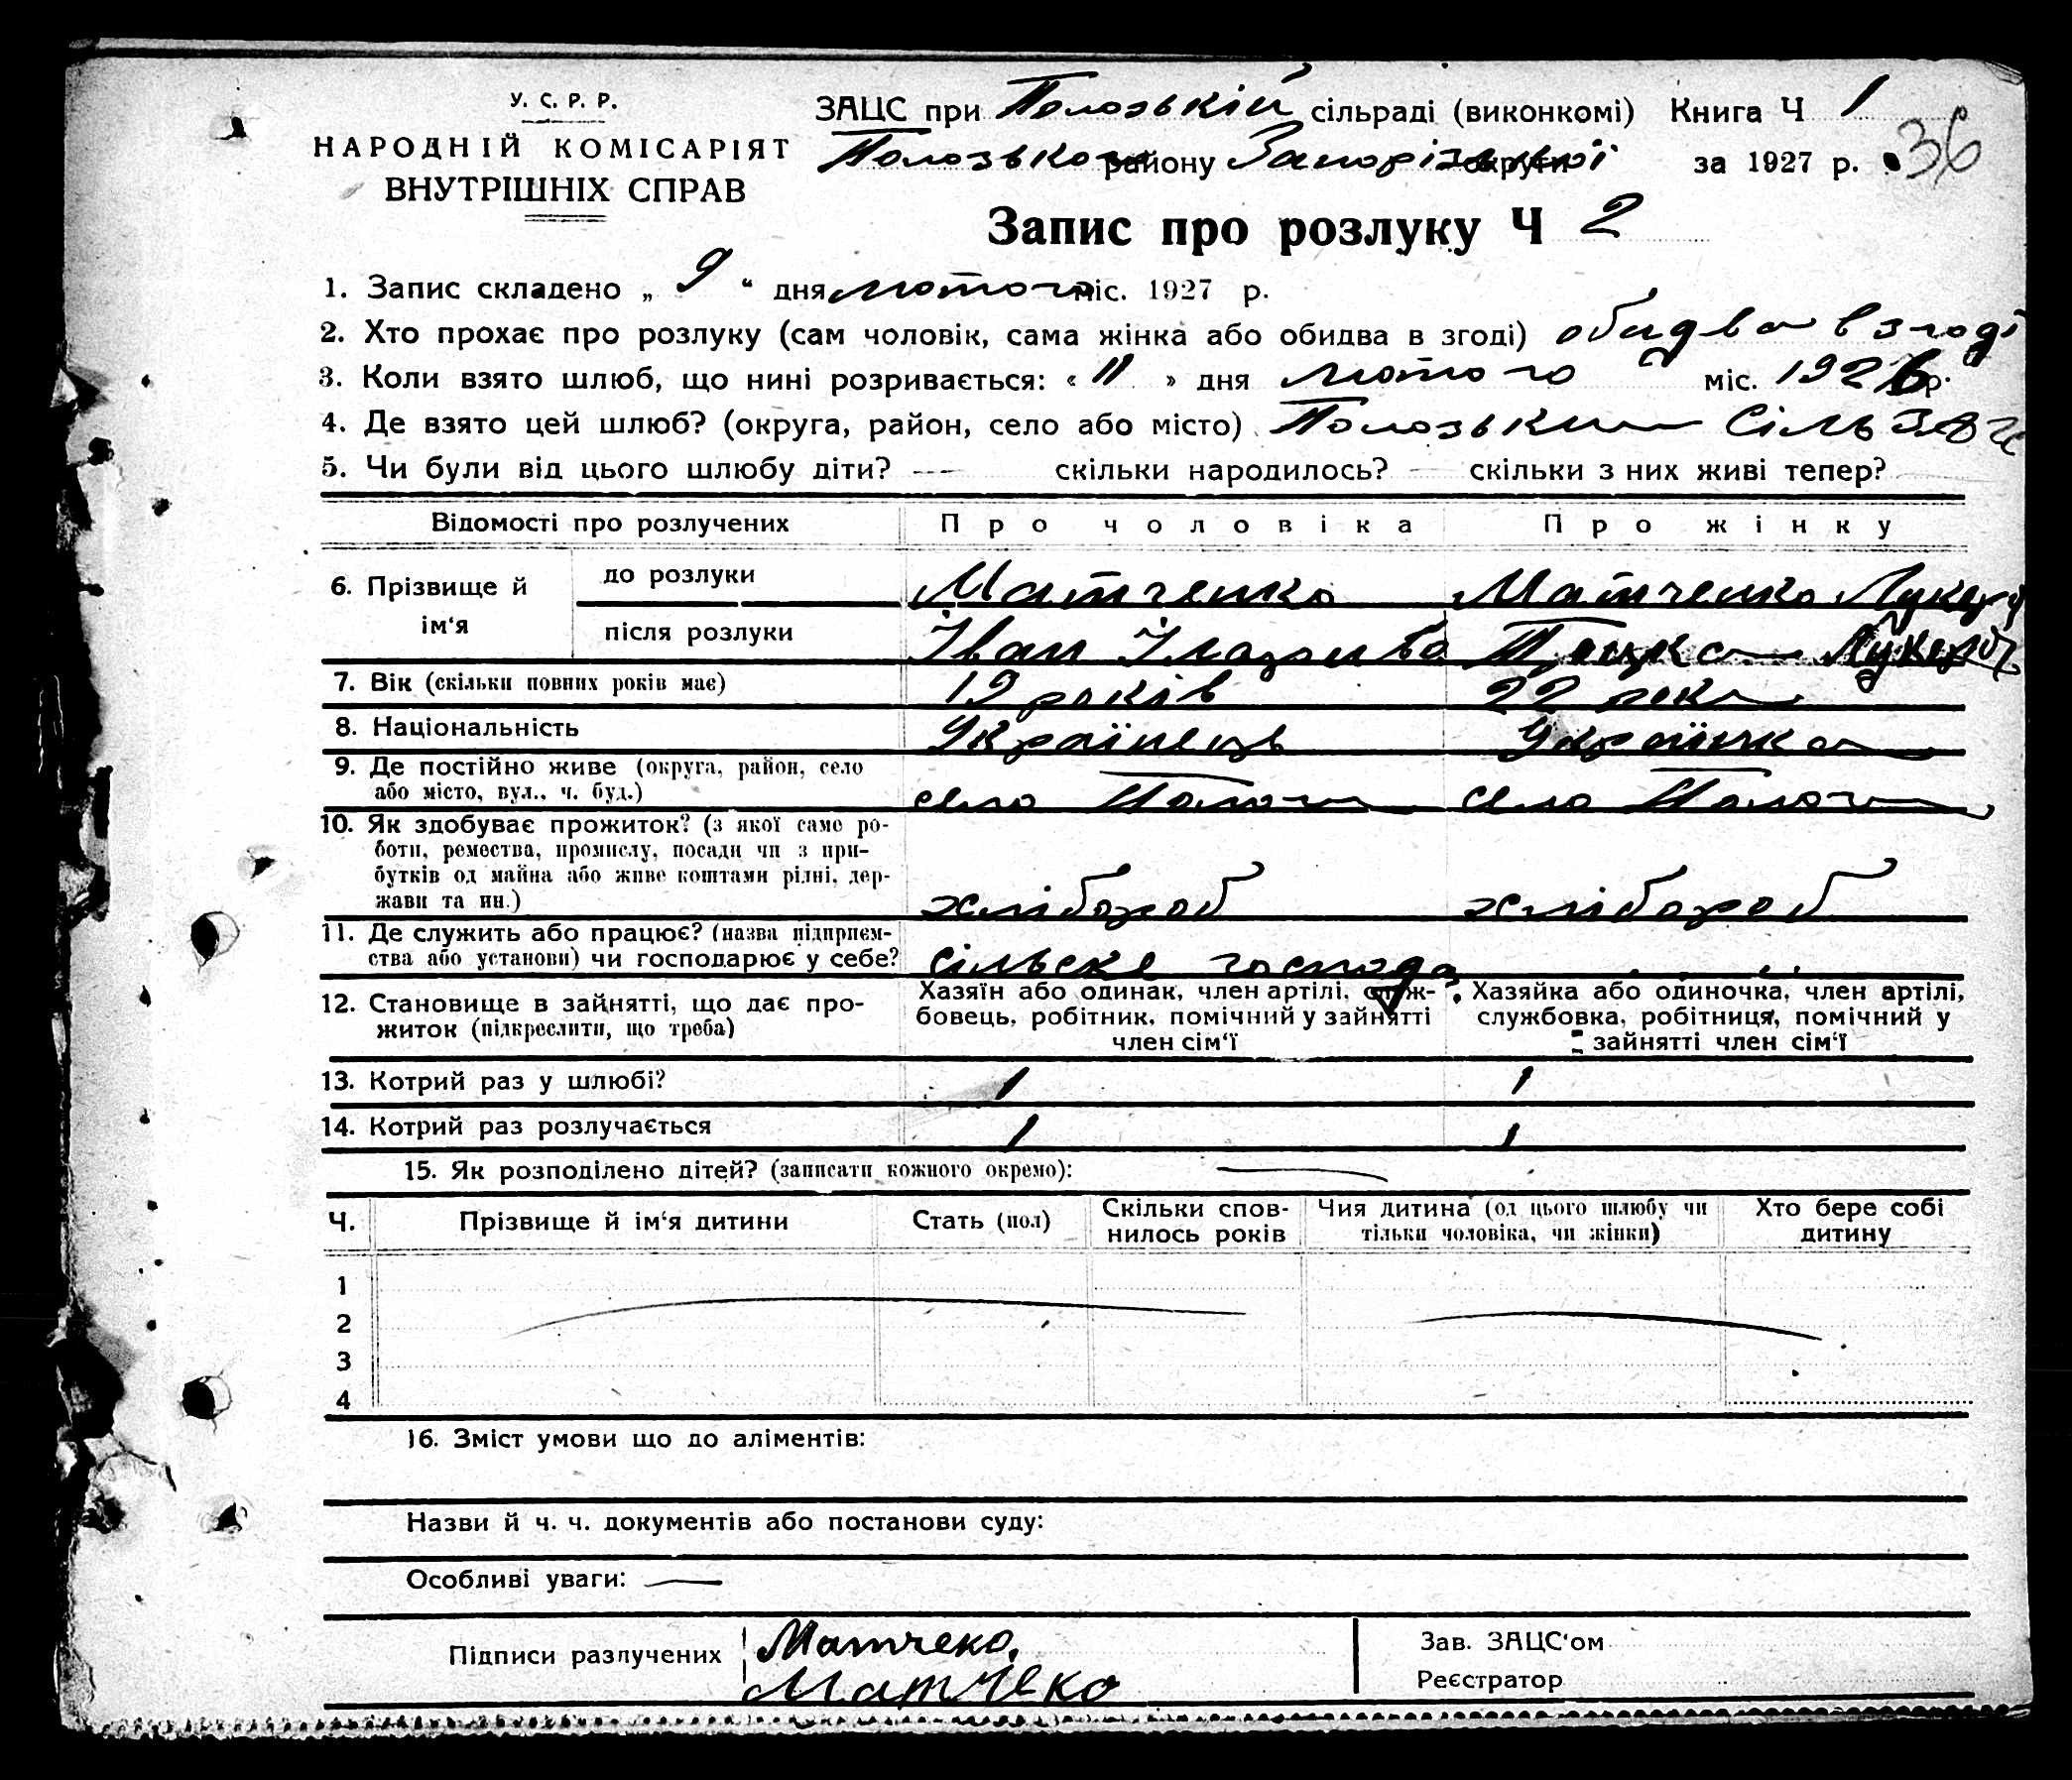 У. С. Р. Р.
НАРОДНІЙ КОМІСАРІЯТ
ВНУТРІШНІХ СПРАВ
ЗАЦС при Полозькій сільраді (виконкомі) Книга Ч 1
Полозького району Запорізької округи за 1927 р. 36
Запис про розлуку Ч 2
1. Запис складено „ 9 “ дня лютого міс. 1927 р.
2. Хто прохає про розлуку (сам чоловік, сама жінка або обидва в згоді) обидва в згоді
3. Коли взято шлюб, що нині розривається: « 11 » дня лютого міс. 1926 р.
4. Де взято цей шлюб? (округа, район, село або місто)
5. Чи були від цього шлюбу діти? — скільки народилось? — скільки з них живі тепер?
Відомості про розлучених Про чоловіка Про жінку
6. Прізвище й ім‘я
до розлуки Матченко Матченко
після розлуки Іван
7. Вік (скільки повних років має) 19 років 22 роки
8. Національність Українець Українка
9. Де постійно живе (округа, район, село або місто, вул., ч. буд.) село Пологи село Пологи
10. Як здобуває прожиток? (з якої саме ро-
боти, ремества, промислу, посади чи з при-
бутків од майна або живе коштами рідні, дер-
жави та ин.) хлібороб хлібороб
11. Де служить або працює? (назва підприєм-
ства або установи) чи господарює у себе? сільске господар
12. Становище в зайнятті, що дає про-
житок (підкреслити, що треба)
Хазяїн або одинак, член артілі, служ-
бовець, робітник, помічний у зайнятті
член сім‘ї
Хазяйка або одиночка, член артілі,
службовка, робітниця, помічний у
зайнятті член сім‘ї
13. Котрий раз у шлюбі? 1 1
14. Котрий раз розлучається 1 1
15. Як розподілено дітей? (записати кожного окремо): —
Ч. Прізвище й ім‘я дитини Стать (пол) Скільки спов-нилось років Чия дитина (од цього шлюбу чи тільки чоловіка, чи жінки) Хто бере собі дитину
1
2
3
4
16. Зміст умови що до аліментів:
Назви й ч. ч. документів або постанови суду:
Особливі уваги: —
Підписи разлучених Матчеко
Матчеко
Зав. ЗАЦС‘ом
Реєстратор